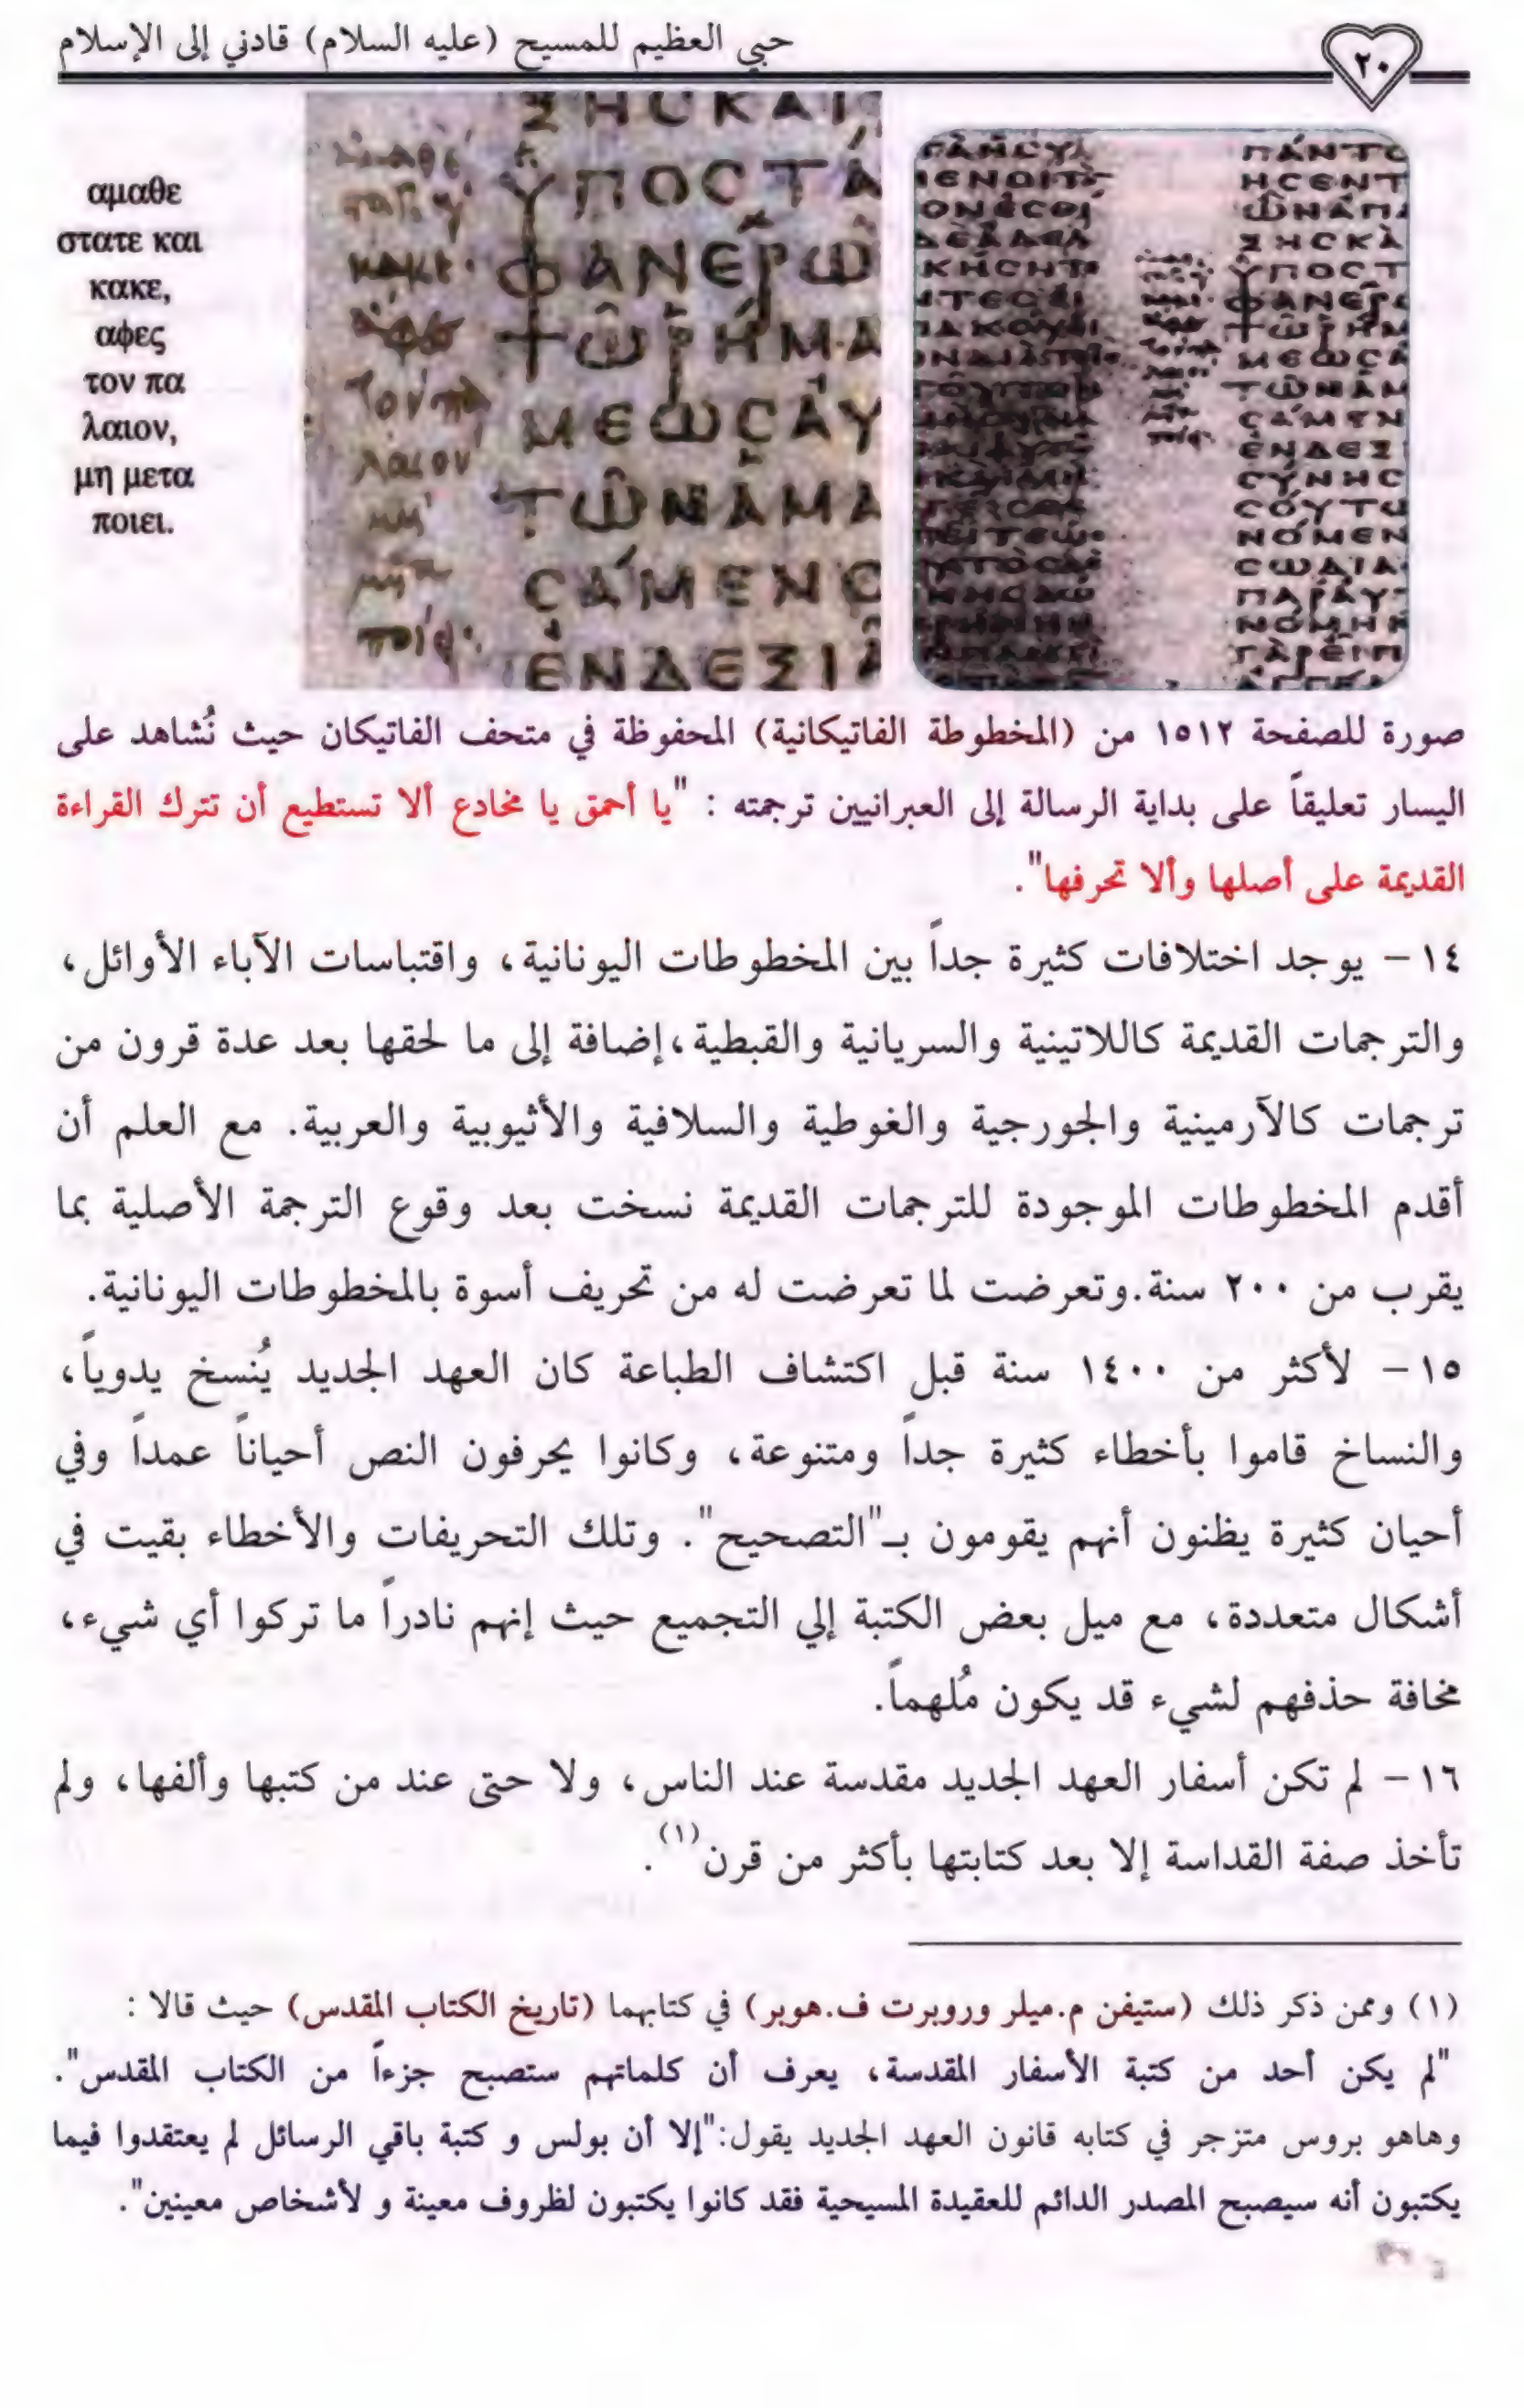 حبي العظيم للمسيح (عليه السلام) قادني إلى الإسلام
٢٠
αμαθε
στατε και
κακε,
αφες
τον πα
λαιον,
μη μετα
ποιει.
ΣΗϹΚΑΙ
ΫΠΟϹΤΑ
ΦΑΝΕΡΩ
ΤΩΡΗΜΑ
ΜΕΩϹΑΥ
ΤΩΝΑΜΑ
ϹΑΜΕΝΟ
ΕΝΔΕΣΙΑ
صورة للصفحة ١٥١٢ من (المخطوطة الفاتيكانية) المحفوظة في متحف الفاتيكان حيث نُشاهد على
اليسار تعليقاً على بداية الرسالة إلى العبرانيين ترجمته : "يا أحمق يا مخادع ألا تستطيع أن تترك القراءة
القديمة على أصلها وألا تحرفها".
١٤ – يوجد اختلافات كثيرة جداً بين المخطوطات اليونانية، واقتباسات الآباء الأوائل،
والترجمات القديمة كاللاتينية والسريانية والقبطية،إضافة إلى ما لحقها بعد عدة قرون من
ترجمات كالآرمينية والجورجية والغوطية والسلافية والأثيوبية والعربية. مع العلم أن
أقدم المخطوطات الموجودة للترجمات القديمة نسخت بعد وقوع الترجمة الأصلية بما
يقرب من ٢٠٠ سنة.وتعرضت لما تعرضت له من تحريف أسوة بالمخطوطات اليونانية.
١٥ – لأكثر من ١٤٠٠ سنة قبل اكتشاف الطباعة كان العهد الجديد يُنسخ يدوياً،
والنساخ قاموا بأخطاء كثيرة جداً ومتنوعة، وكانوا يحرفون النص أحياناً عمداً وفي
أحيان كثيرة يظنون أنهم يقومون بـ"التصحيح". وتلك التحريفات والأخطاء بقيت في
أشكال متعددة، مع ميل بعض الكتبة إلي التجميع حيث إنهم نادراً ما تركوا أي شيء،
مخافة حذفهم لشيء قد يكون مُلهماً.
١٦ – لم تكن أسفار العهد الجديد مقدسة عند الناس، ولا حتى عند من كتبها وألفها، ولم
تأخذ صفة القداسة إلا بعد كتابتها بأكثر من قرن(١).
(١) وممن ذكر ذلك (ستيفن م.ميلر وروبرت ف.هوبر) في كتابهما (تاريخ الكتاب المقدس) حيث قالا :
"لم يكن أحد من كتبة الأسفار المقدسة، يعرف أن كلماتهم ستصبح جزءاً من الكتاب المقدس".
وهاهو بروس متزجر في كتابه قانون العهد الجديد يقول:"إلا أن بولس و كتبة باقي الرسائل لم يعتقدوا فيما
يكتبون أنه سيصبح المصدر الدائم للعقيدة المسيحية فقد كانوا يكتبون لظروف معينة و لأشخاص معينين".